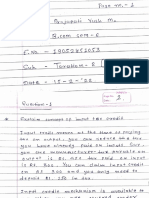 Page no. - 1
Prajapati Yash M.
B.com sem - 6
E.No. - 19052251053
Sub - Taxation - 2
Date - 15 - 3 - '22
Question - 1
Explain concept of input tax credit
Input credit means at the time of paying
output, you can reduce the tax you have
already paid on inputs. Say,
you are manufacturer - tax payable on
output is Rs 450 tax paid on input
is Rs 300 You can claim input credit
to Rs 300 and you only need to
deposit Rs 150 in tax.
Input credit mechanism is available to